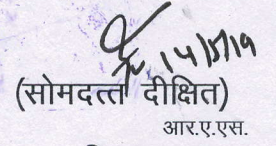 14/5/19
(सोमदत्त दीक्षित)
आर.ए.एस.